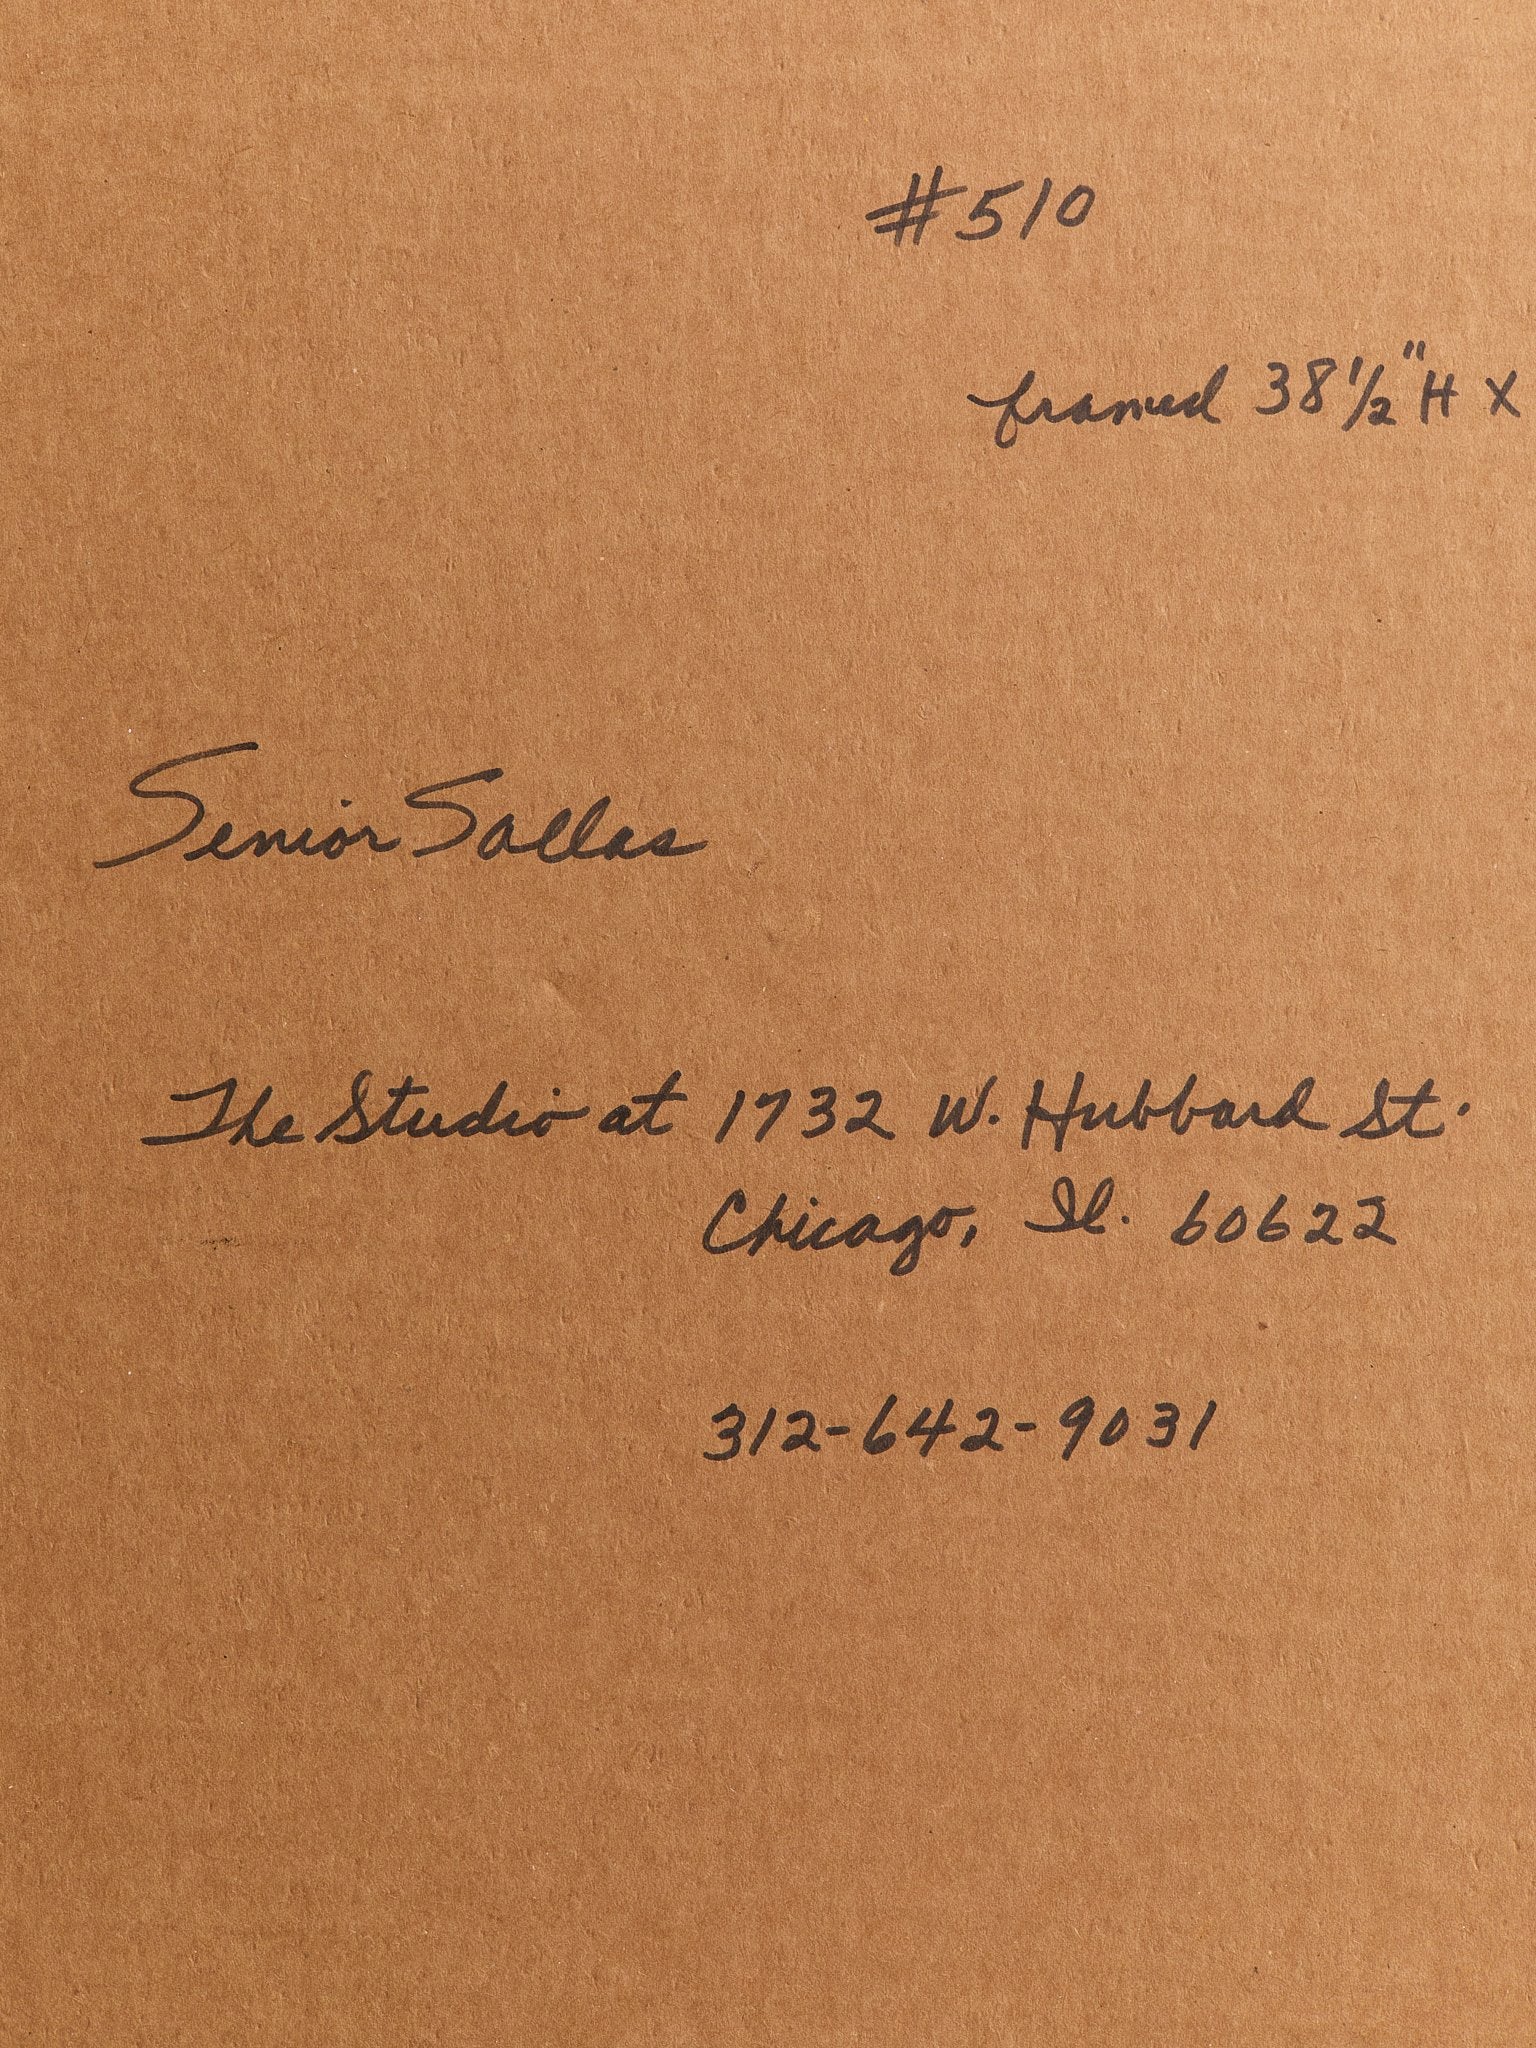 #510
framed 38 1/2" H X
Senior Sallas
The Studio at 1732 W. Hubbard St.
Chicago, Il. 60622
312-642-9031